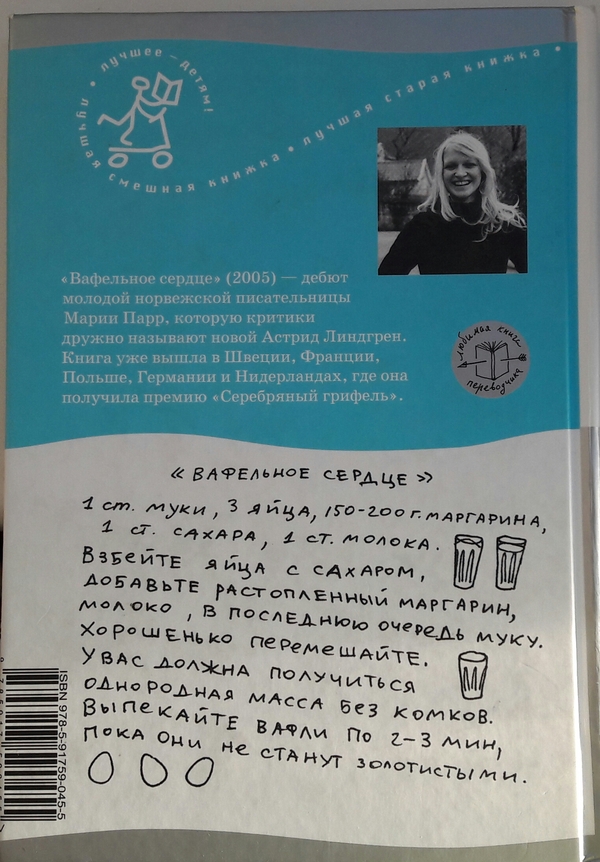 • лучшее — детям!
лучшая смешная книжка • лучшая старая книжка •
«Вафельное сердце» (2005) — дебют
молодой норвежской писательницы
Марии Парр, которую критики
дружно называют новой Астрид Линдгрен.
Книга уже вышла в Швеции, Франции,
Польше, Германии и Нидерландах, где она
получила премию «Серебряный грифель».
любимая книга
переводчика
« ВАФЕЛЬНОЕ СЕРДЦЕ »
1 ст. муки, 3 яйца, 150-200 г. МАРГАРИНА,
1 ст. САХАРА, 1 ст. МОЛОКА.
ВЗБЕЙТЕ ЯЙЦА С САХАРОМ,
ДОБАВЬТЕ РАСТОПЛЕННЫЙ МАРГАРИН,
МОЛОКО, В ПОСЛЕДНЮЮ ОЧЕРЕДЬ МУКУ.
ХОРОШЕНЬКО ПЕРЕМЕШАЙТЕ.
У ВАС ДОЛЖНА ПОЛУЧИТЬСЯ
ОДНОРОДНАЯ МАССА БЕЗ КОМКОВ.
ВЫПЕКАЙТЕ ВАФЛИ ПО 2-3 МИН,
ПОКА ОНИ НЕ СТАНУТ ЗОЛОТИСТЫМИ.
ISBN 978-5-91759-045-5